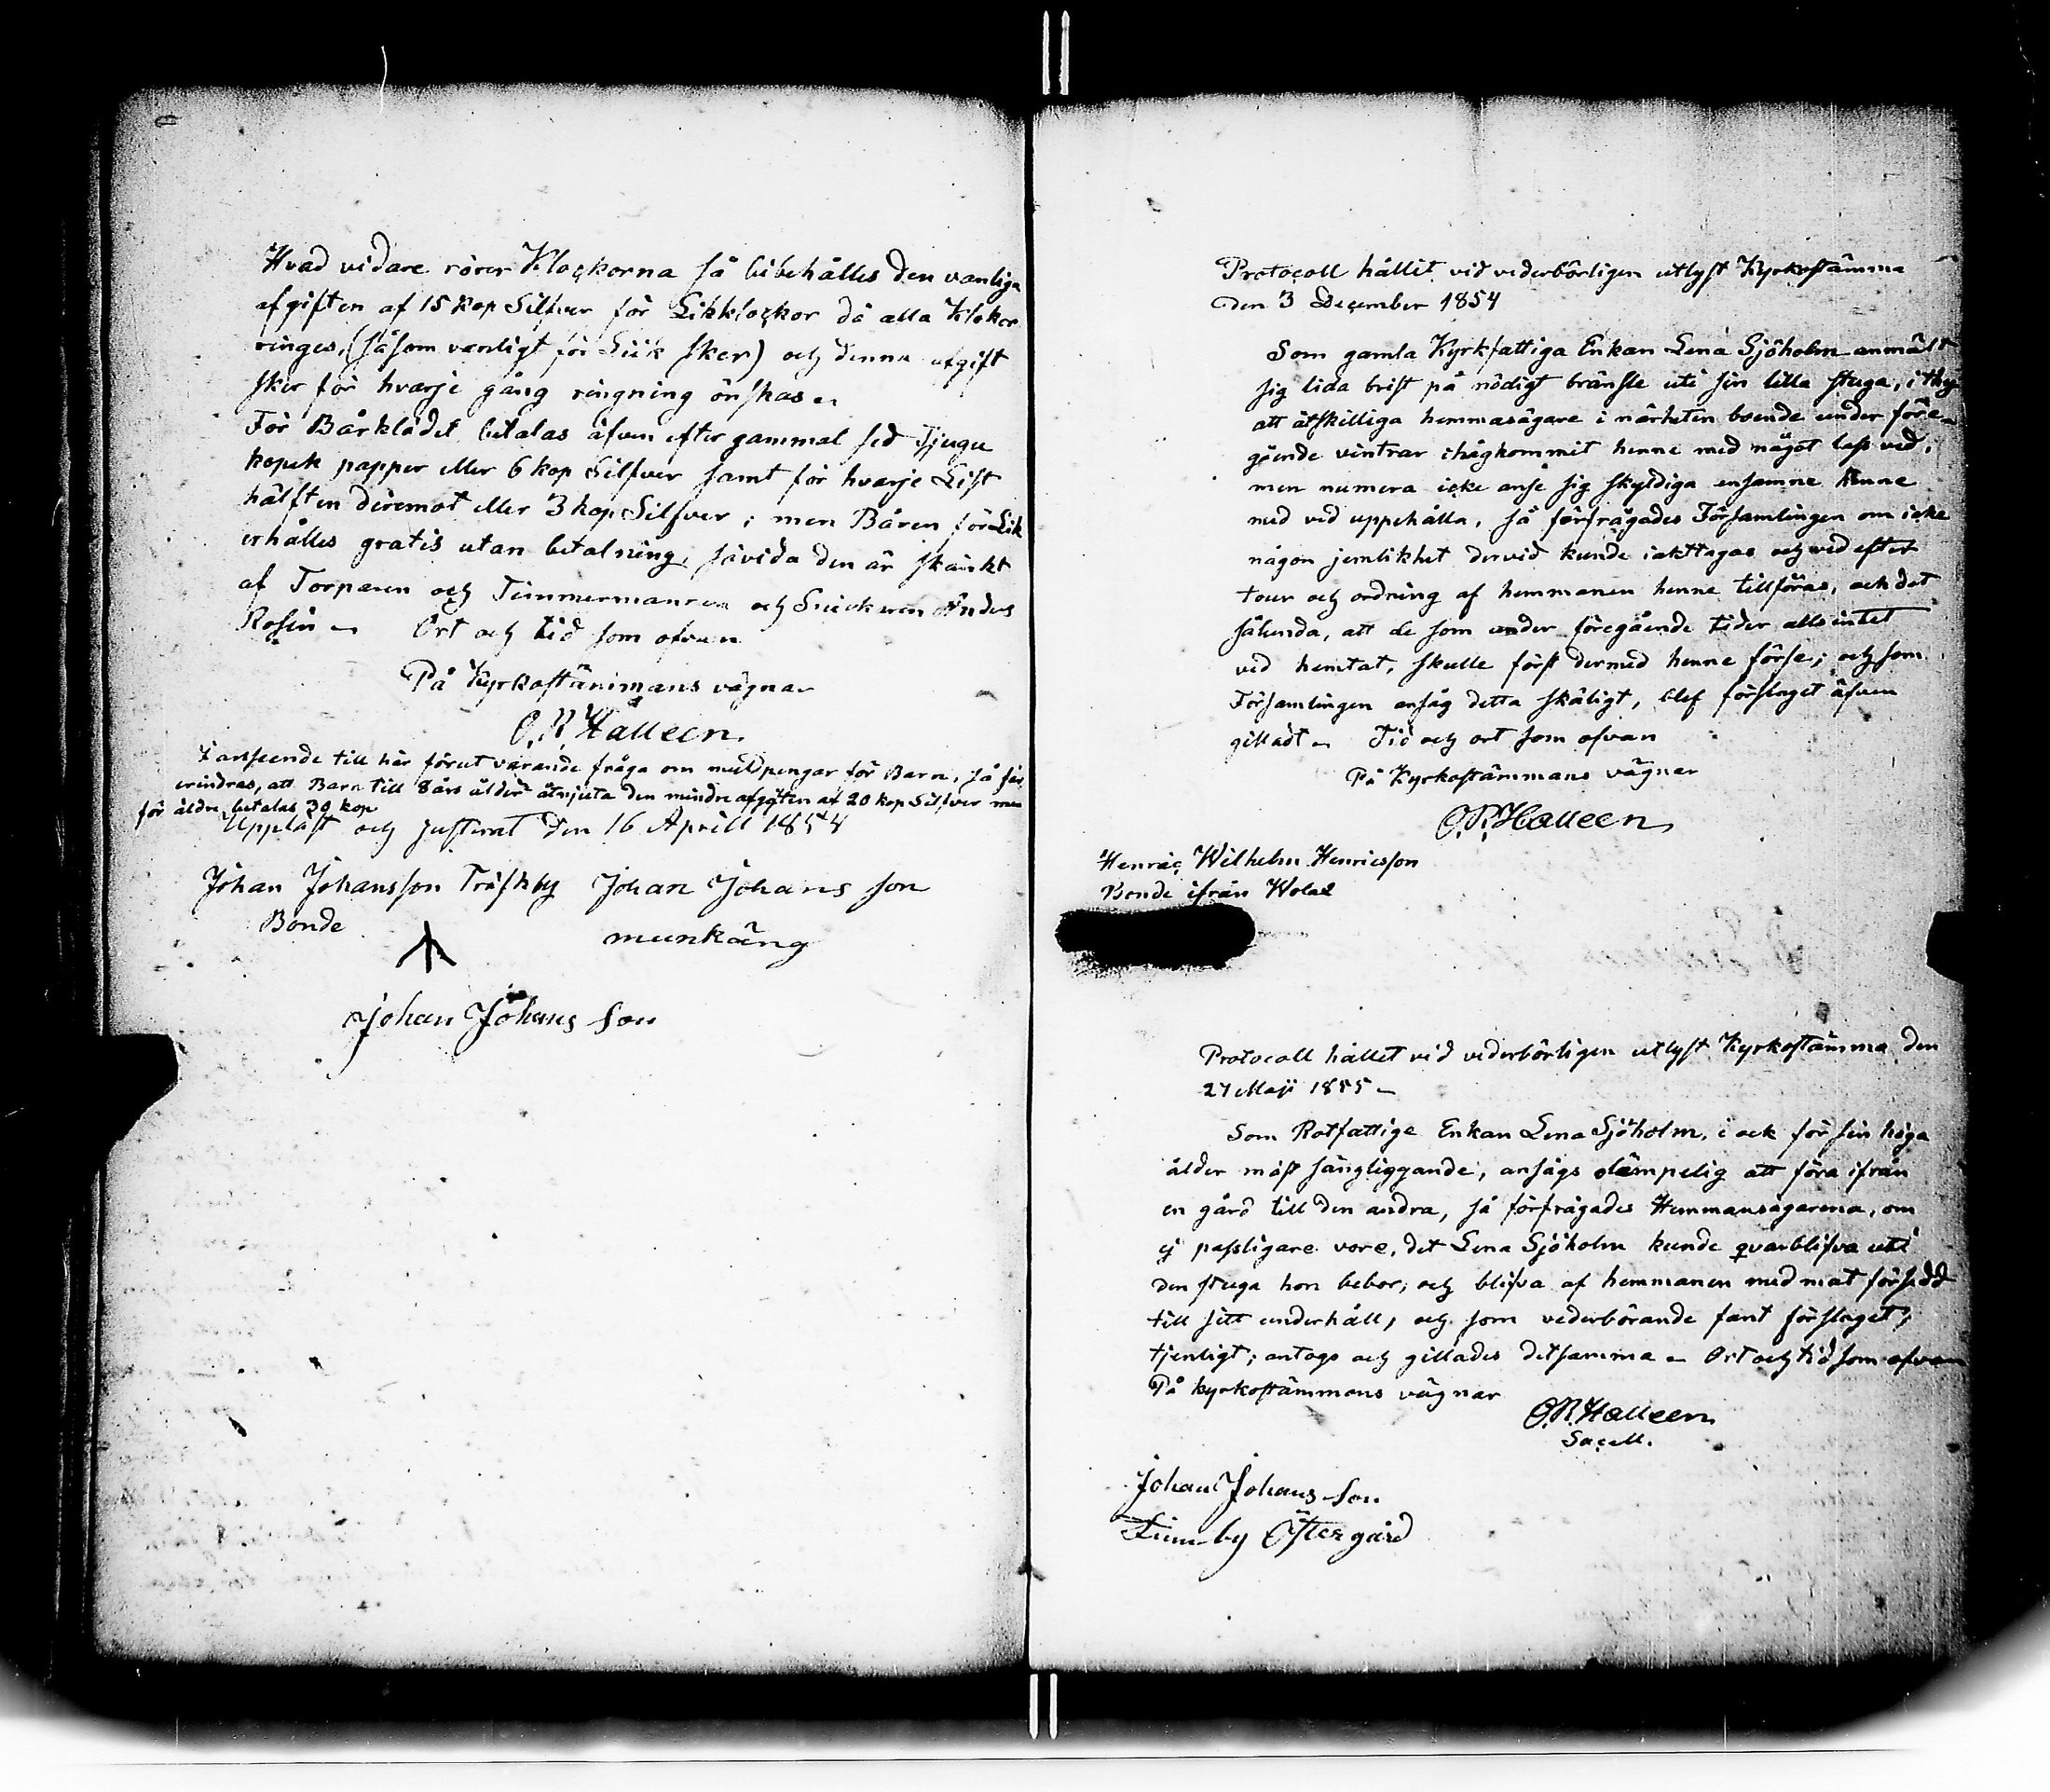 Hvad vidare rörer Klockorna så bibehålles den vanliga
afgiften af 15 kop Silfver för Likklockor då alla Klokor
ringes, (såsom vanligt för Liik sker) och denna afgift
sker för hvarje gång ringning önskas
För Bårklädet betalas äfven efter gammal sed tjugu
kopek papper eller 6 kop Silfver samt för hvarje List
hälften deremot eller 3 kop Silfver; men Båren för Lik
erhålles gratis utan betalning, såvida den är skänkt
af Torparen och Timmermannen och Snickeren Anders
Rosin Ort och tid som ofvan
På Kyrkostämmans vägnar
O. R. Halleen.
I anseende till här förut varande fråga om mullpengar för Barn, så får
erindras, att Barn till 8 års ålder åtnjuta den mindre afgiften af 20 kop Silfver men
för äldre betalas 30 kop
Uppläst och justerat den 16 Aprill 1854
Johan Johansson Träskby Johan Johans son
Bonde
munkäng
Johan Johans son
Protocoll hållit vid vederbörligen utlyst Kyrkostämma
den 3 December 1854
Som gamla Kyrkfattiga Enkan Lena Sjöholm anmält
sig lida brist på nödigt bränsle uti sin lilla stuga, i thy
att åtskilliga hemmasägare i närheten boende under före-
gående vintrar ihågkommit henne med något lass ved,
men numera icke anse sig skyldiga ensamne henne
med ved uppehålla, så förfrågades Församlingen om icke
någon jemlikhet dervid kunde iakttagas och ved efter
tour och ordning af hemmanen henne tillföras, och det
sålunda, att de som under föregående tider alls intet
ved hemtat, skulle först dermed henne förse; och som
Församlingen ansåg detta skäligt, blef förslaget äfven
gilladt Tid och ort som ofvan
På Kyrkostämmans vägnar
O. R. Halleen
Henric Wilhelm Henricsson
Bonde ifrån
Protocoll hållet vid vederbörligen utlyst Kyrkostämma den
27 Maji 1855
Som Rotfattige Enkan Lena Sjöholm, i ock för sin höga
ålder mäst sängliggande, ansågs olämpelig att föra ifrån
en gård till den andra, så förfrågades Hemmansägarena, om
ej passligare vore, det Lena Sjöholm kunde qvarblifva uti
den stuga hon bebor, och blifva af hemmanen med mat försedd
till sitt underhåll, och som vederbörande fant förslaget
tjenligt; antogs och gillades detsamma Ort och tid som ofvan
På kyrkostämmans vägnar
O. R. Halleen
Sacell.
Johan Johans son
by Östergård